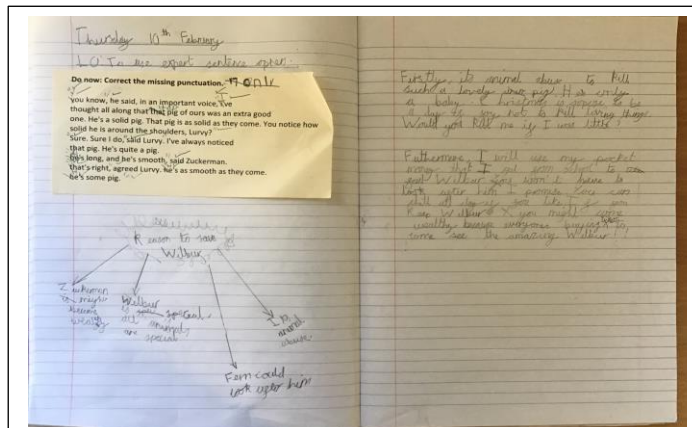 Thursday 10th February
LO: To use expert sentence open
Do now: Correct the missing punctuation.
you know, he said, in an important voice, I've
thought all along that that pig of ours was an extra good
one. He's a solid pig. That pig is as solid as they come. You notice how
solid he is around the shoulders, Lurvy?
Sure. Sure I do, said Lurvy. I've always noticed
that pig. He's quite a pig.
He's long, and he's smooth, said Zuckerman.
that's right, agreed Lurvy. he's as smooth as they come.
he's some pig.
Reason to save
Wilbur
Zuckerman
might
become
wealthy
Wilbur
is special.
all animals
are special
Fern could
look after him
Its
animal
Firstly, its animal abuse to kill
such a lovely pig. He is only
a baby. Christmas is supose to be
a day to not to kill living things
Would you kill me if I was little?
Fathermore, I will use my pocket
money that I get
Wilbur. You won't have to
look after him I promise. You can
chill all day if you like. If you
Keep Wilbur you might
wealthy because everyone buying
come see the amazing Wilbur!